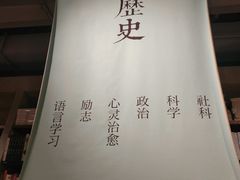 歷史
社科
科学
政治
心灵治愈
励志
语言学习